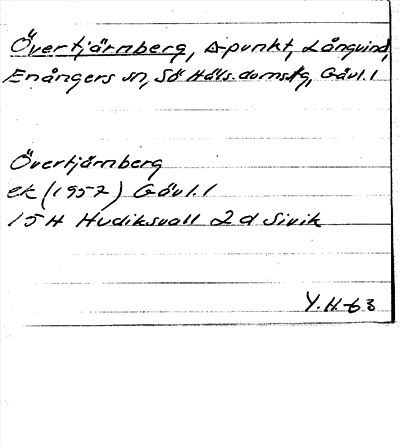 Övertjärnberg, Δ-punkt, Långvind,
Enångers sn, Sö Häls. domsg, Gävl. l
Övertjärnberg
ek (1957) Gävl. l
15H Hudiksvall 2d Sivik
Y.H-63